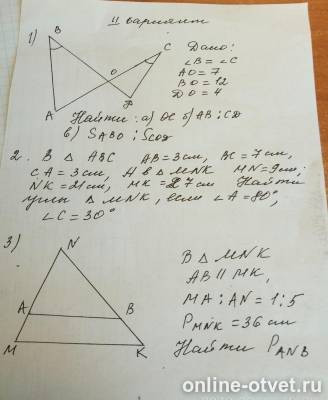 II вариант
1)
B
C
O
A
D
Дано:
∠B = ∠C
AO = 7
BO = 12
DO = 4
Найти: а) OC б) AB : CD
в) S ABO : S COD
2. В △ ABC AB = 3 см, BC = 7 см,
CA = 3 см, А в △ MNK MN = 9 см;
NK = 21 см, MK = 27 см Найти
углы △ MNK, если ∠A = 80°,
∠C = 30°
3)
N
A
B
M
K
В △ MNK
AB || MK,
MA : AN = 1 : 5
P MNK = 36 см
Найти P ANB
online-otvet.ru